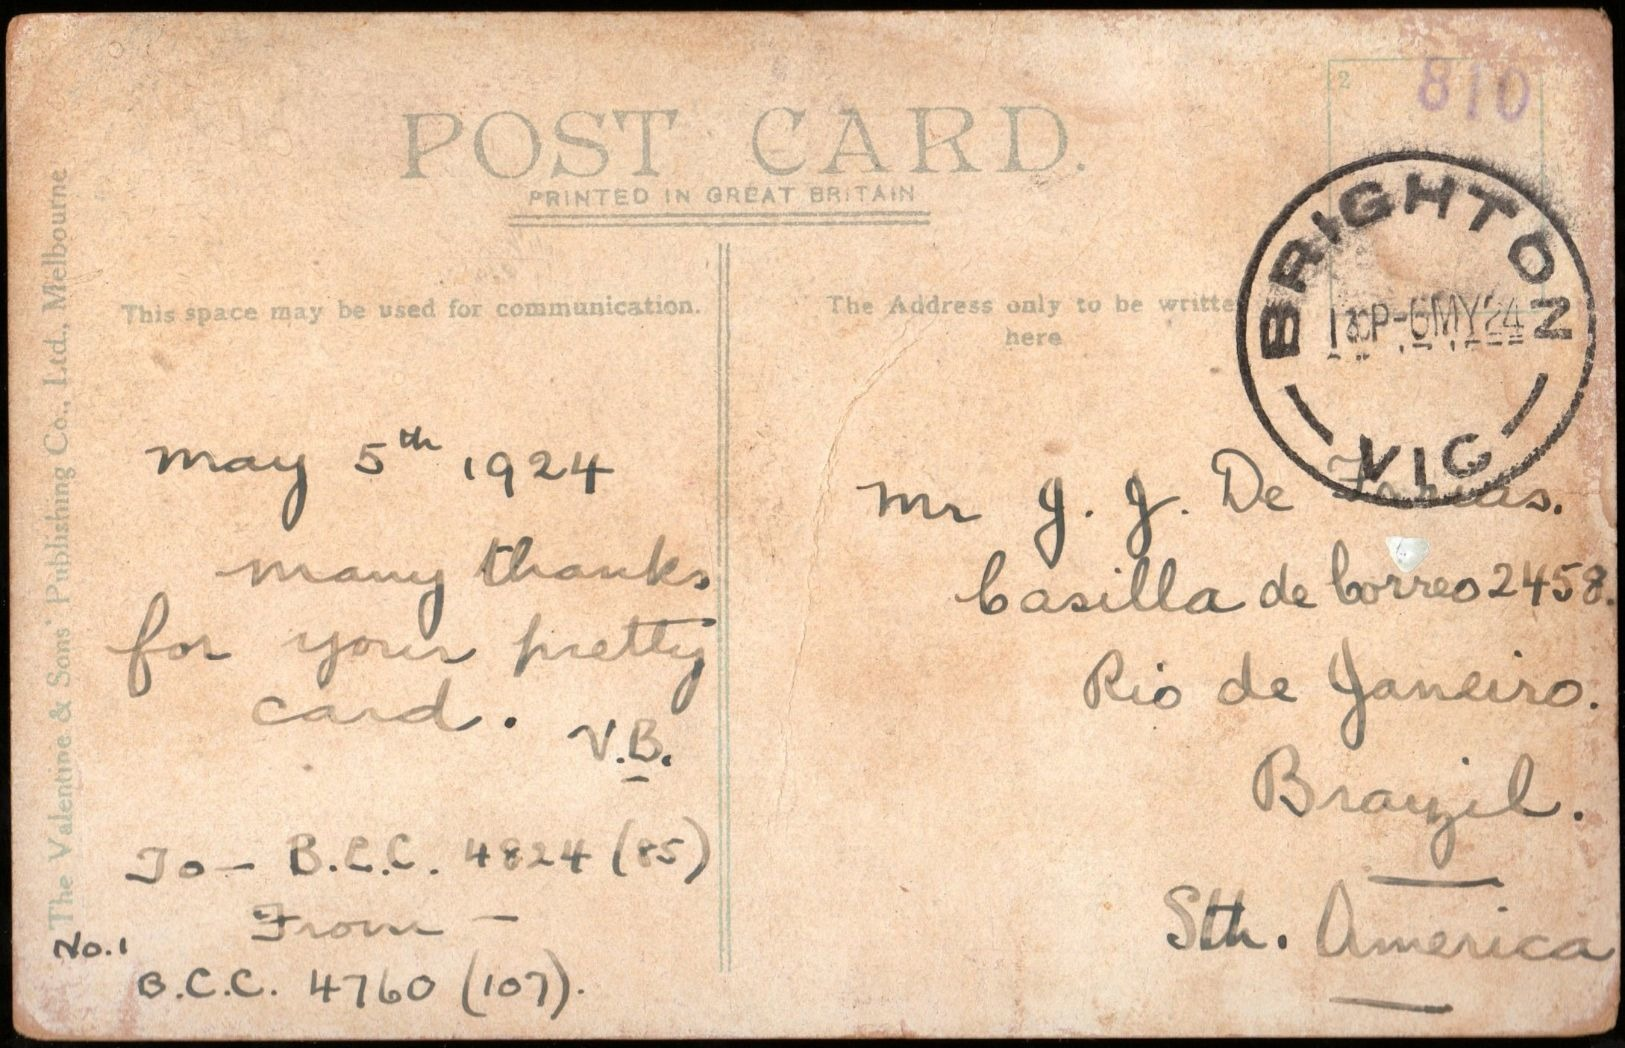 POST CARD.
PRINTED IN GREAT BRITAIN
2
810
BRIGHTON
130P-6MY24
VIC
The Valentine & Sons' Publishing Co., Ltd., Melbourne
This space may be used for communication.
May 5th 1924
many thanks
for your pretty
card.
V.B.
To— B.C.C. 4824 (85)
From —
No. 1
B.C.C. 4760 (107).
The Address only to be writte
here
Mr J. J. De
Casilla de Correo 2458.
Rio de Janeiro.
Brayzil.
Sth. America